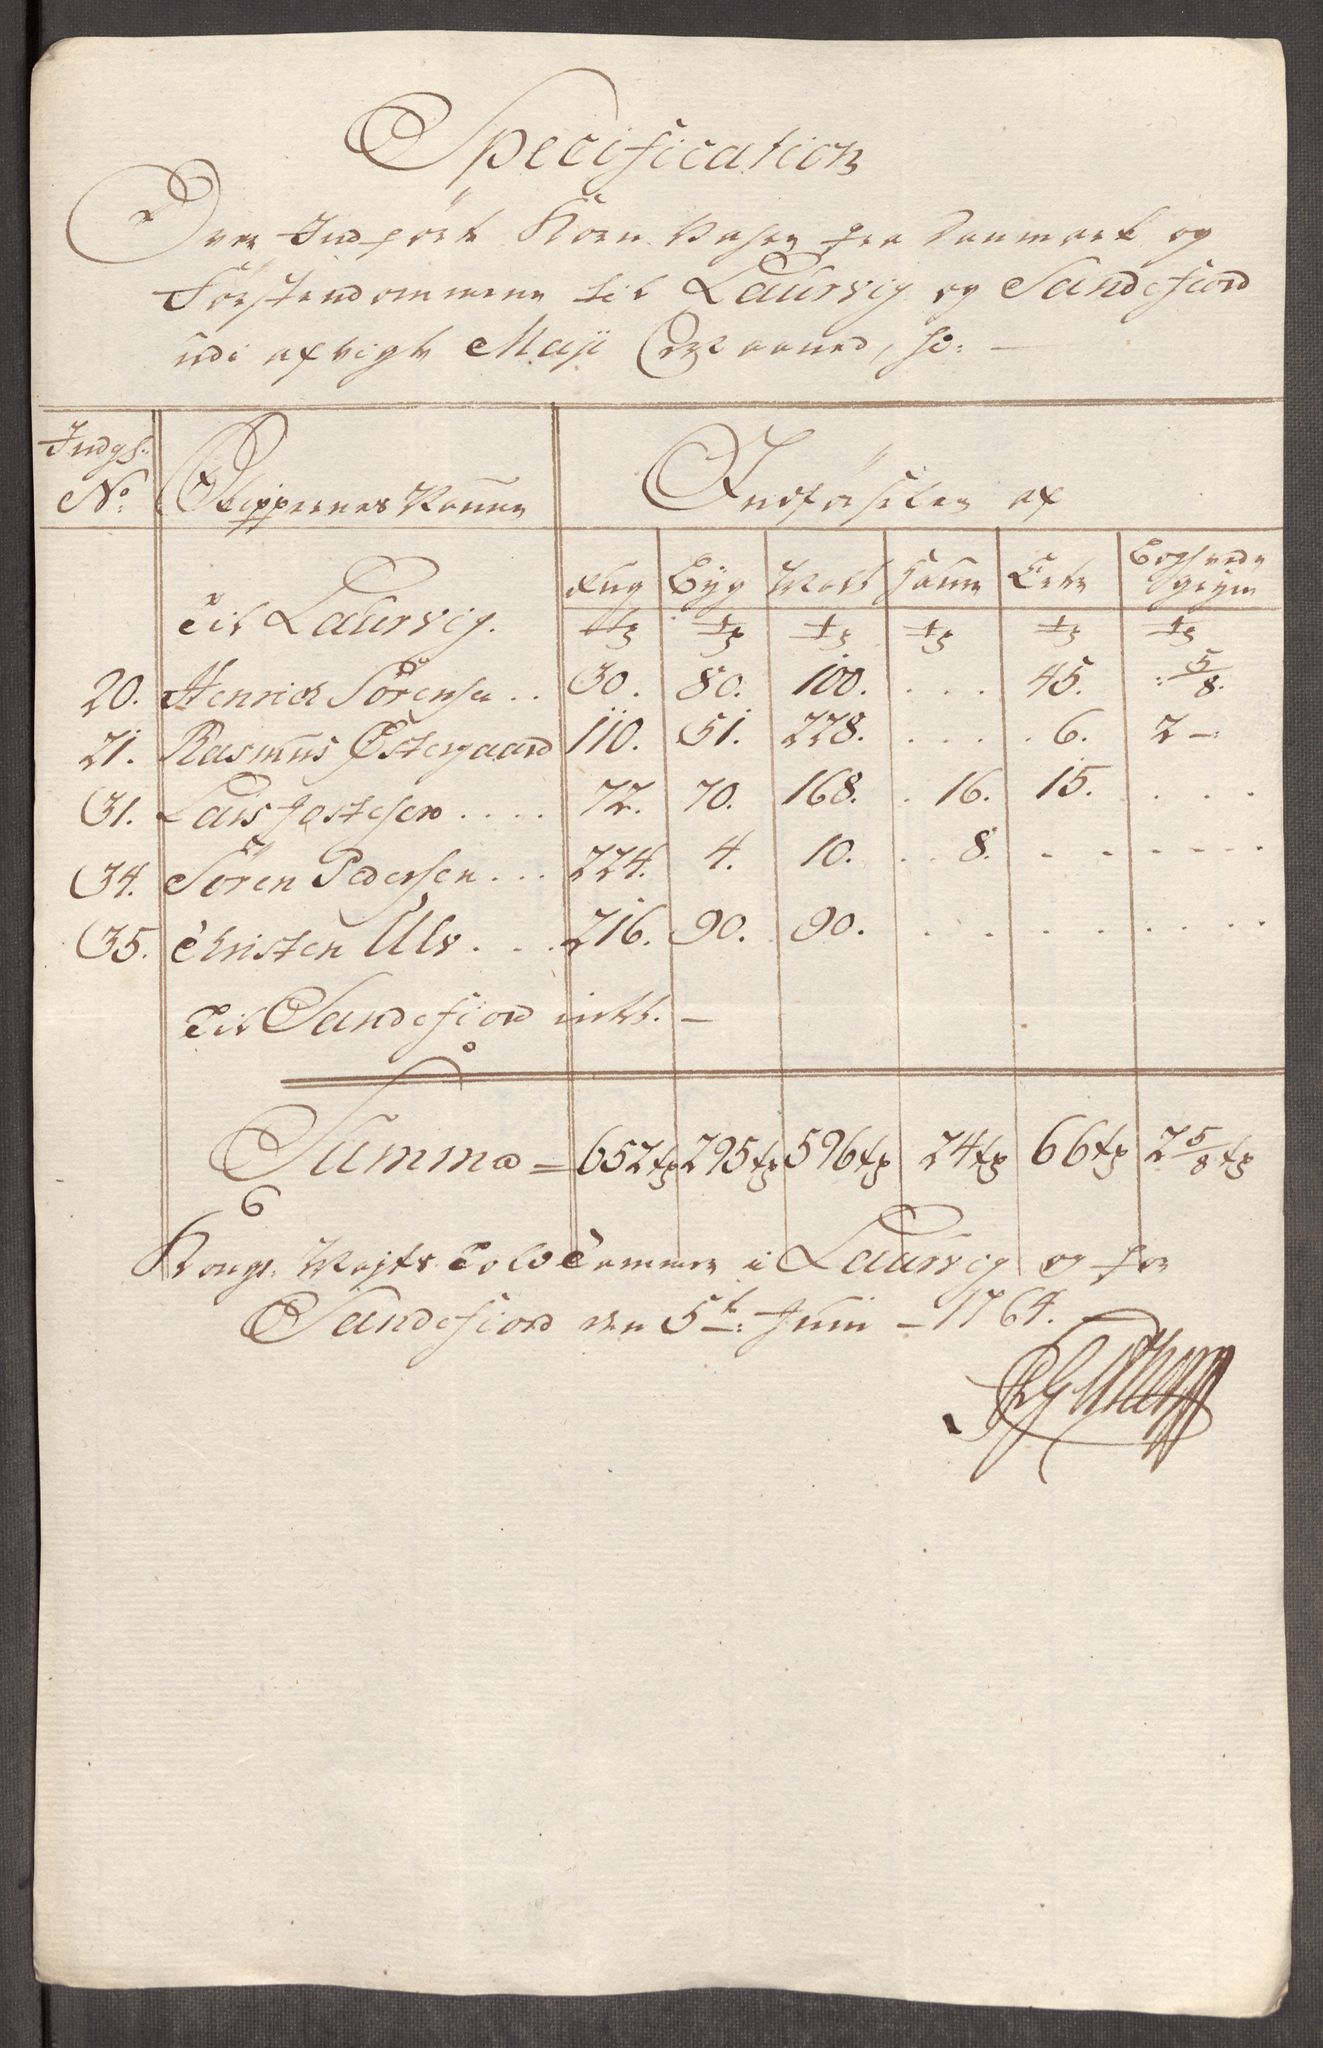 Specification
Over Indført Korn Vahre fra Danmark og
Førstendommene til Laurvig og Sandefiord
udi afvigte Maji Maaned, så: —
Indgs:
No: Skippernes Navne Indførselen af
Rug Byg Malt Havre Erter Boghvede
gryn
Til Laurvig. tr tr tr tr tr tr
20. Henrich Sörensen .. 30. 80. 100. . . . 45. : 5/8.
21. Rasmus Østergaard 110. 51. 228. . . . . 6. 2 –:
31. Lars Jostesen .... 72. 70. 168. . 16. 15. . . . .
34. Sören Pedersen ... 224. 4. 10. . . 8. . . . . . . .
35. Christen Ulv . . . . 216. 90. 90. . . . . . . . . . .
Til Sandefiord intet. —
Summa = 652 tr 295 tr 596 tr 24 tr 66 tr 2 5/8 tr
Kongl: Mayts Told Cammer i Laurvig og for
Sandefiord den 5te: Junii – 1764.